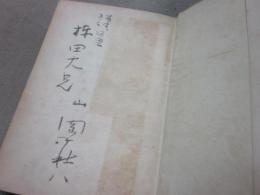 棟田大兄
山岡荘八